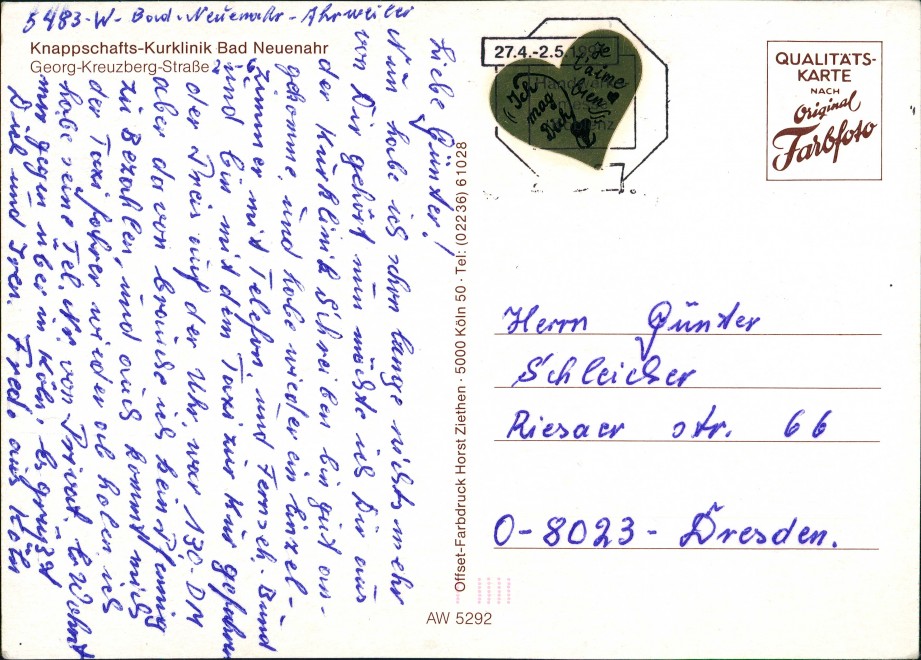 5483-W- Bad-Neuenahr-Ahrweiler
Knappschafts-Kurklinik Bad Neuenahr
Georg-Kreuzberg-Straße 2-6
Liebe Günter!
Nun habe ich schon lange nichts mehr
von Dir gehört nun möchte ich Dir aus
der Kurklinik schreiben bin gut an-
gekomme, und habe wieder ein Einzel-
Zimmer mit Telefon, und Fernseh. Bund
und bin mit dem Taxi zur Kur gefahren
der Preis auf der Uhr, war 130-DM
aber davon brauche ich kein Pfennig
zu Bezahlen, und auch kommt mich
der Taxifahrer wieder ab holen ich
habe seine Tel. Nr. von Privat. Er Wohnt
mir gegenüber in Köln, Es grüßt
Dich und Iren. Frede aus Köln
Offset-Farbdruck Horst Ziethen · 5000 Köln 50 · Tel: (02236) 61028
AW 5292
27.4.-2.5.19
Ich
mag
Dich
Je
t'aime
bien
QUALITÄTS-
KARTE
NACH
Original
Farbfoto
Herrn Günter
Schleicher
Riesaer str. 66
O-8023- Dresden.